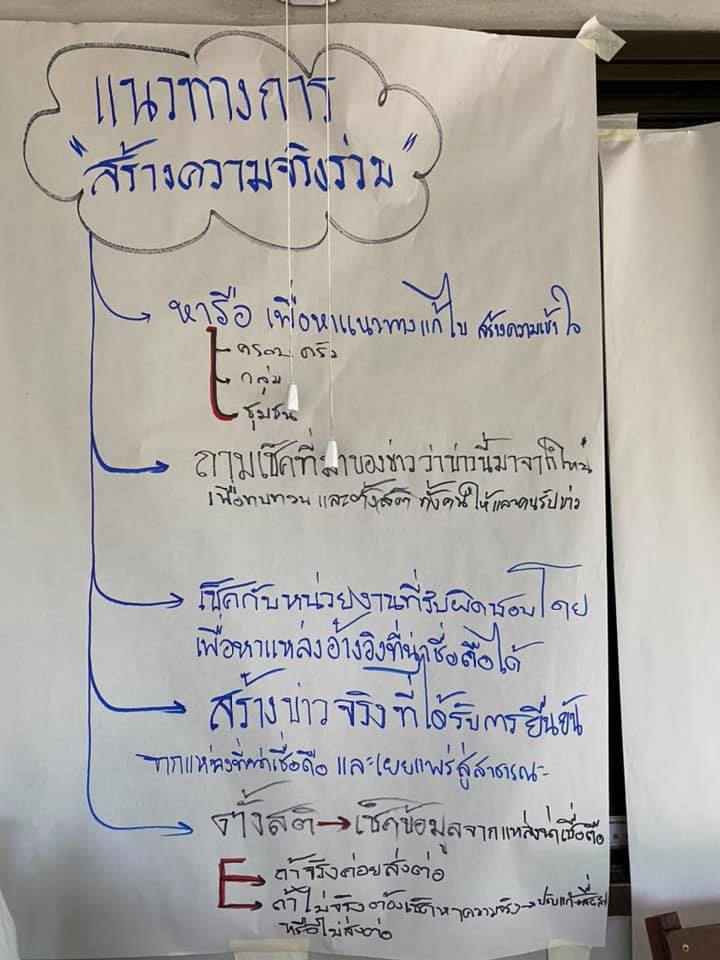 แนวทางการ
"สร้างความจริงร่วม"
หารือ เพื่อหาแนวทางแก้ไข สร้างความเข้าใจ
ครอบครัว
กลุ่ม
ชุมชน
ถามเช็คที่มาของข่าวว่าข่าวนี้มาจากไหน
เพื่อทบทวน และตั้งสติ ทั้งคนให้และคนรับข่าว
เช็คกับหน่วยงานที่รับผิดชอบโดย
เพื่อหาแหล่งอ้างอิงที่น่าเชื่อถือได้
สร้างข่าวจริงที่ได้รับการยืนยัน
จากแหล่งที่น่าเชื่อถือ และเผยแพร่สู่สาธารณะ
ตั้งสติ → เช็คข้อมูลจากแหล่งน่าเชื่อถือ
ถ้าจริงค่อยส่งต่อ
ถ้าไม่จริงต้องเช็คหาความจริง →
หรือไม่ส่งต่อ